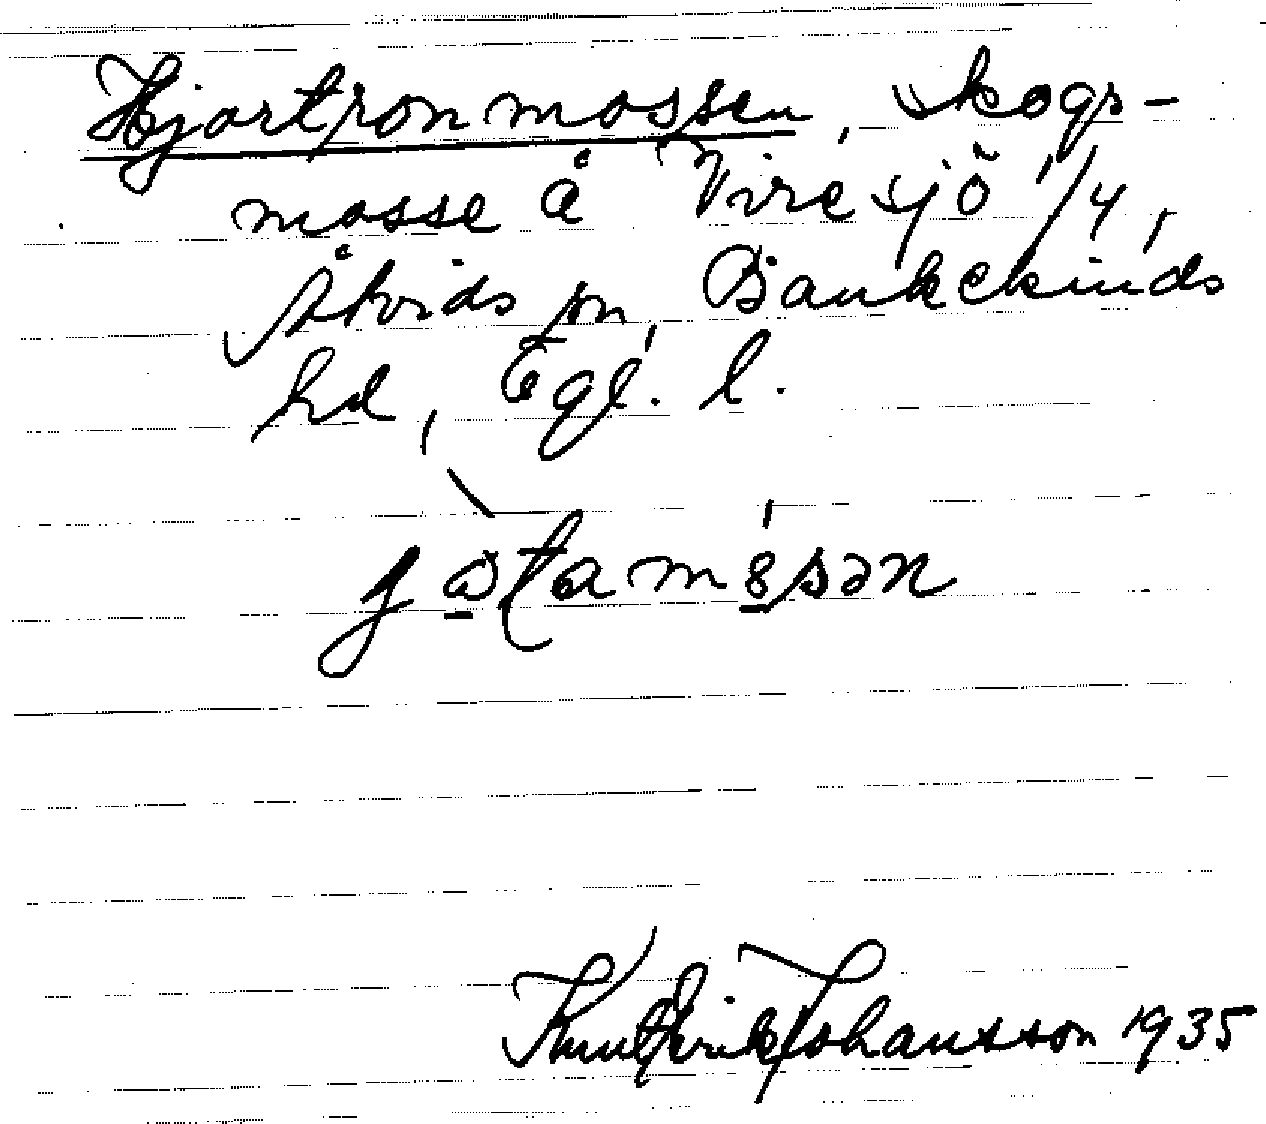 Hjortronmossen, skogs-
mosse å Viresjö 1/4,
Åtvids sn, Bankekinds
hd, Ögl. l.
Knut Erik Johansson 1935